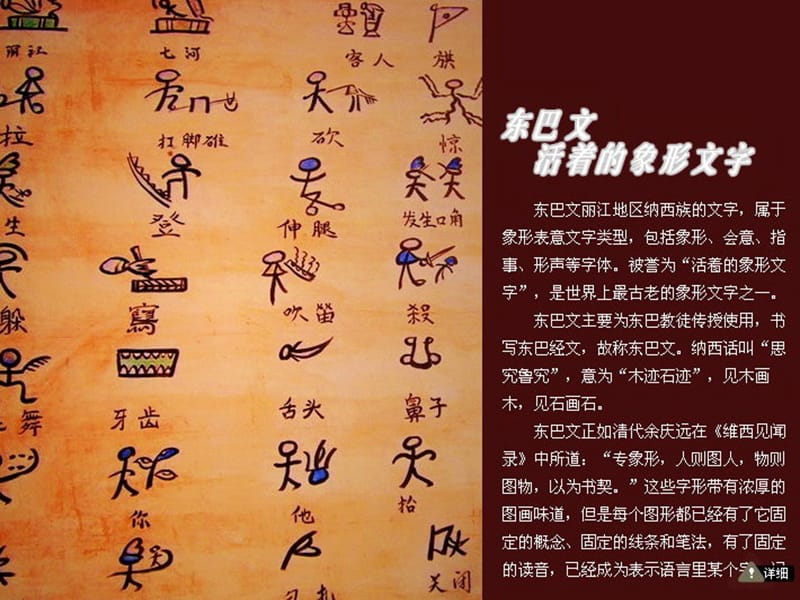 七河
客人
旗
拉
扛脚碓
砍
惊
生
登
伸腿
发生口角
躲
寫
吹笛
殺
舞
牙齿
舌头
鼻子
你
他
抬
关闭
东巴文
活着的象形文字
东巴文丽江地区纳西族的文字，属于
象形表意文字类型，包括象形、会意、指
事、形声等字体。被誉为“活着的象形文
字”，是世界上最古老的象形文字之一。
东巴文主要为东巴教徒传授使用，书
写东巴经文，故称东巴文。纳西话叫“思
究鲁究”，意为“木迹石迹”，见木画
木，见石画石。
东巴文正如清代余庆远在《维西见闻
录》中所道：“专象形，人则图人，物则
图物，以为书契。”这些字形带有浓厚的
图画味道，但是每个图形都已经有了它固
定的概念、固定的线条和笔法，有了固定
的读音，已经成为表示语言里某个字、词
详细